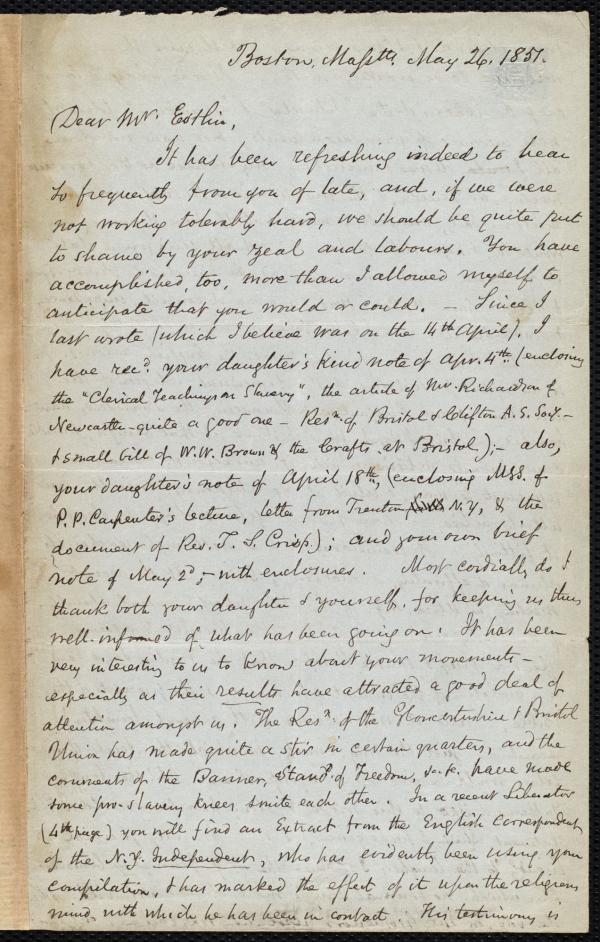 Boston, Massts. May 26. 1851.
Dear Mr. Estlin,
It has been refreshing indeed to hear
so frequently from you of late, and, if we were
not working tolerably hard, we should be quite put
to shame by your zeal and labours. You have
accomplished, too, more than I allowed myself to
anticipate that you would or could. – Since I
last wrote (which I believe was on the 14th April), I
have recd. your daughter's kind note of Apr. 4th. (enclosing
the "Clerical Teachings on Slavery", the article of Mr. Richardson of
Newcastle – quite a good one – Resn. of Bristol & Clifton A. S. Socy. –
& small bill of W. W. Brown & the Crafts at Bristol); – also,
your daughter's note of April 18th, (enclosing MSS. of
P. P. Carpenter's lecture, letter from Trenton N. Y, & the
document of Rev. T. S. Crisp.); and your own brief
note of May 2d, – with enclosures. Most cordially do I
thank both your daughter & yourself, for keeping us thus
well-informed of what has been going on. It has been
very interesting to us to know about your movements –
especially as their results have attracted a good deal of
attention amongst us. The Resn. of the Gloucestershire & Bristol
Union has made quite a stir in certain quarters, and the
comments of the Banner, Standd. of Freedom, &c. &c. have made
some pro-slavery knees smite each other. In a recent Liberator
(4th page) you will find an Extract from the English correspondent
of the N. Y. Independent, who has evidently been using your
compilation, & has marked the effect of it upon the religious
mind, with which he has been in contact. His testimony is